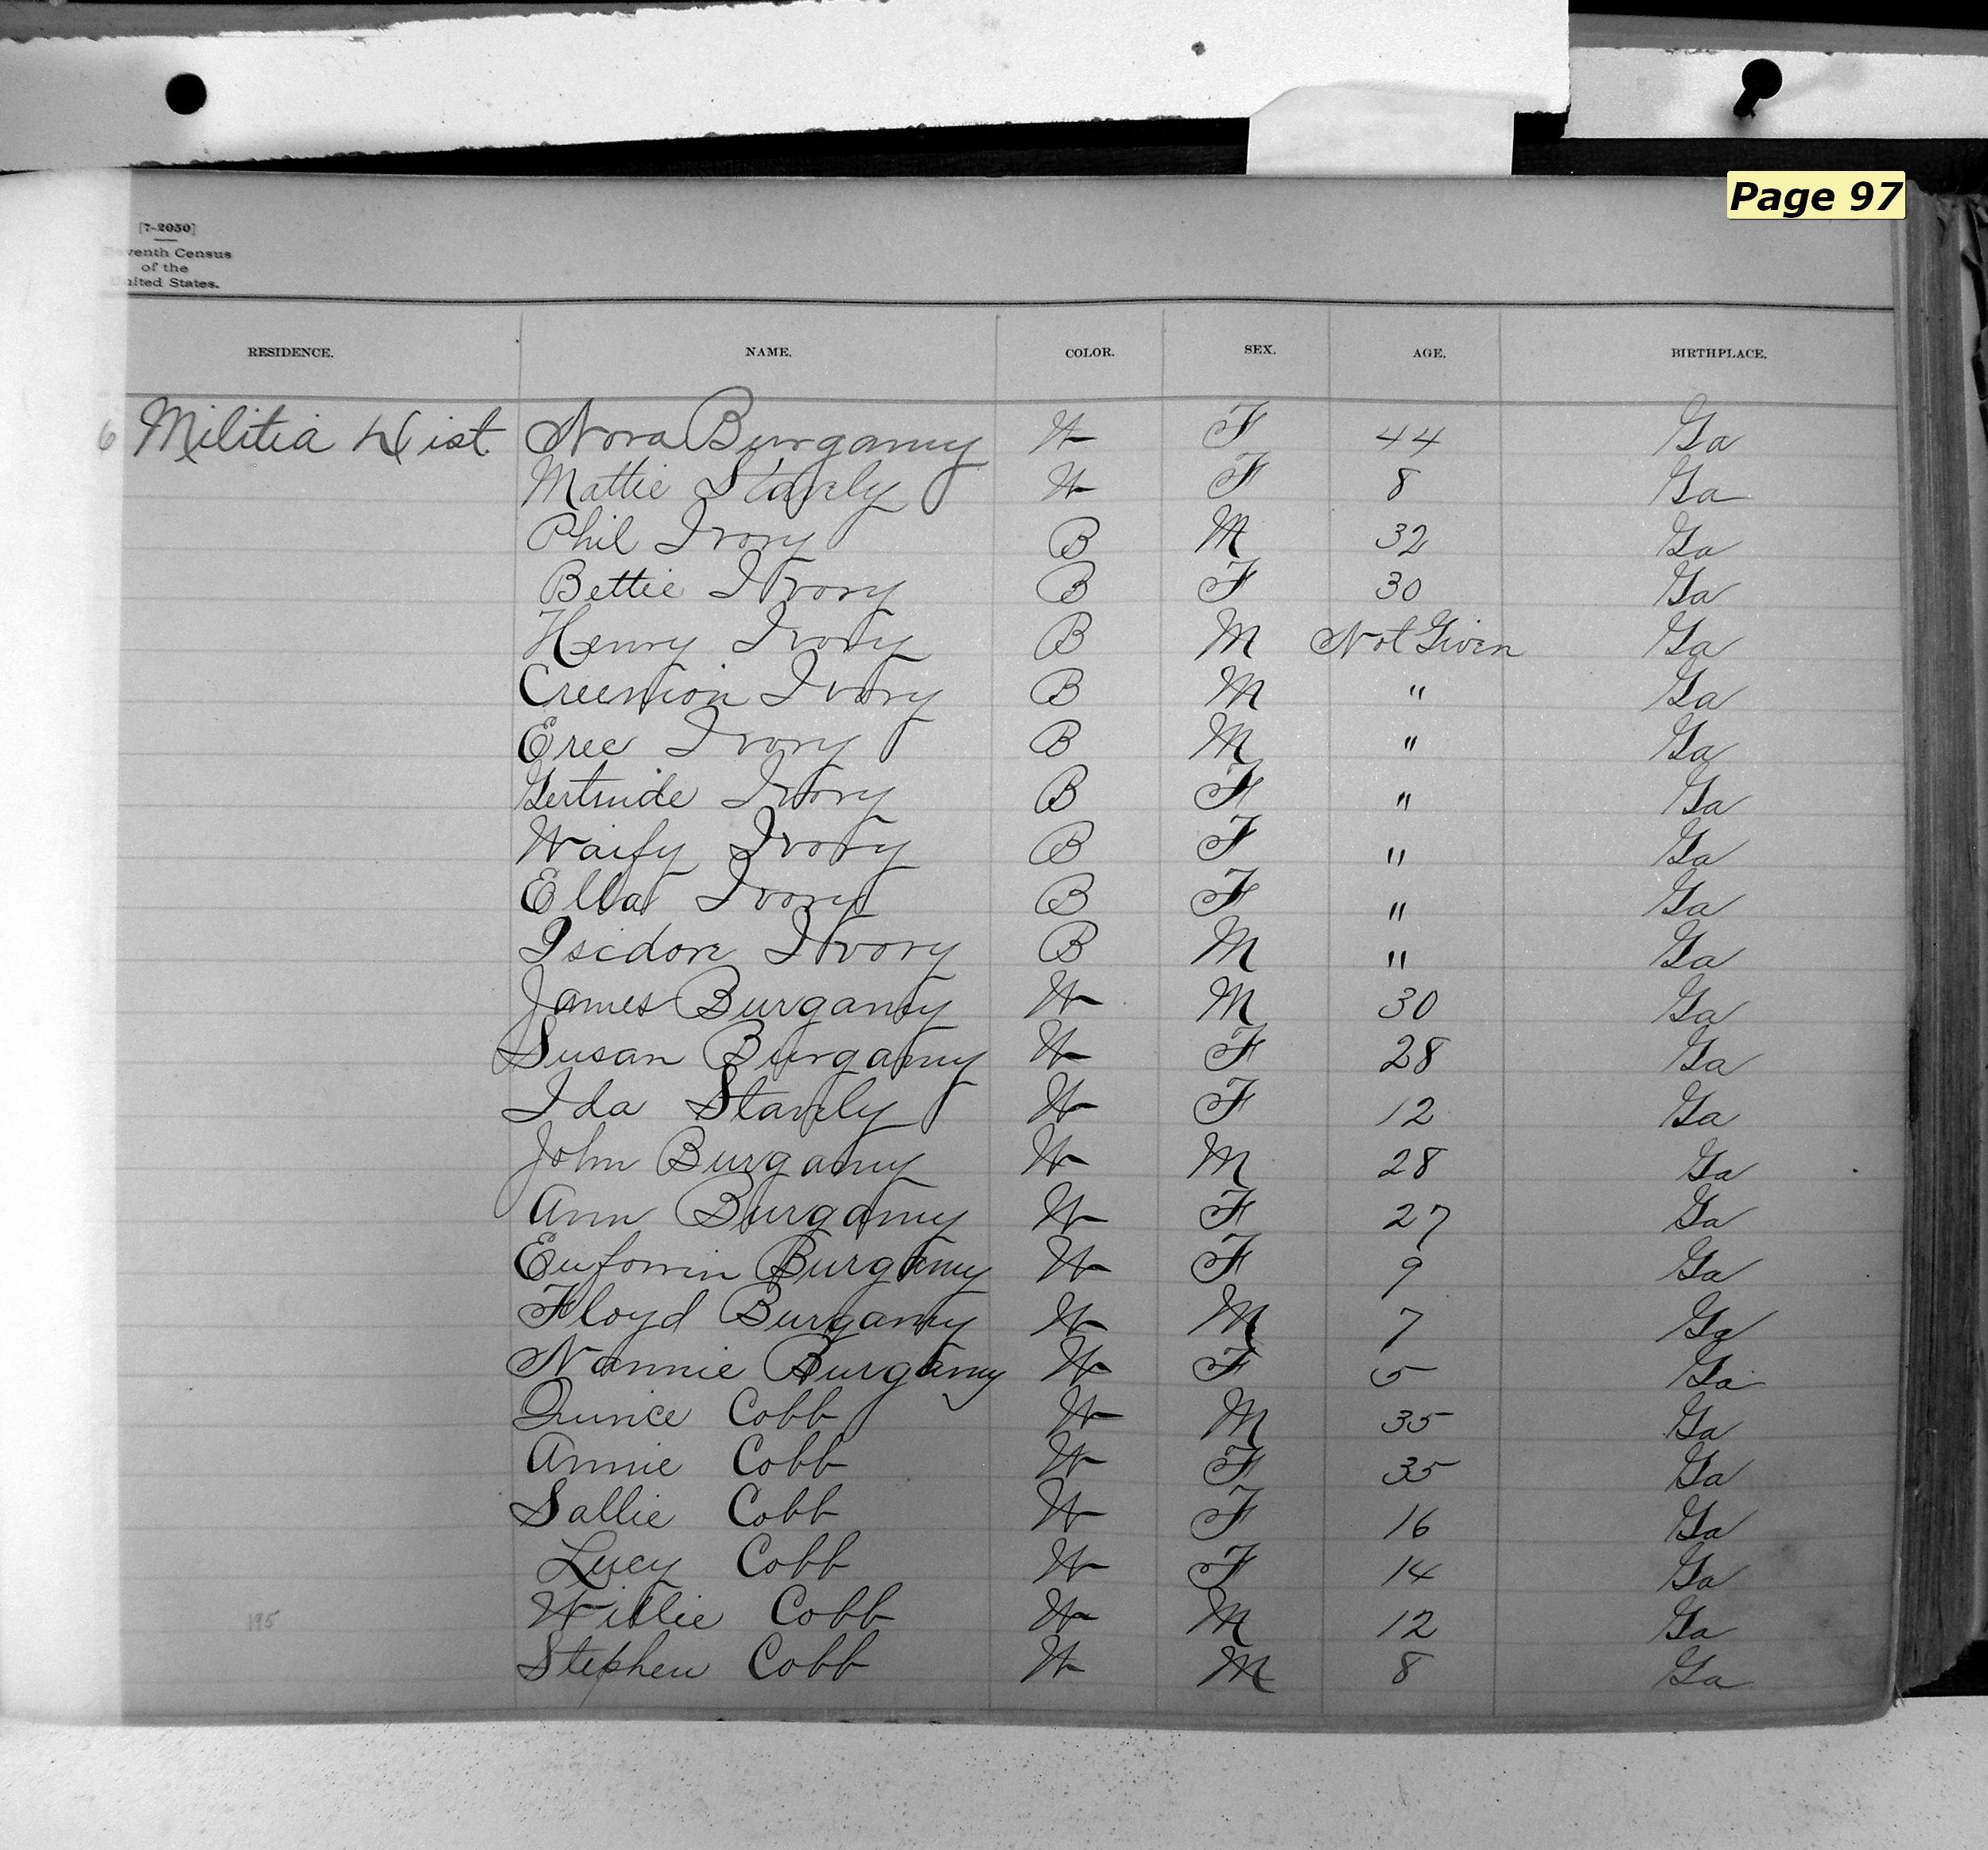 Page 97
[7-2050]
venth Census
of the
nited States.
RESIDENCE. NAME. COLOR. SEX. AGE. BIRTHPLACE.
6 Militia Dist. Nora Burgamy W F 44 Ga
Mattie Stanly W F 8 Ga
Phil Ivory B M 32 Ga
Bettie Ivory B F 30 Ga
Henry Ivory B M Not Given Ga
Creension Ivory B M " Ga
Eree Ivory B M " Ga
Gertrude Ivory B F " Ga
Waify Ivory B F " Ga
Ella Ivory B F " Ga
Isidore Ivory B M " Ga
James Burgamy W M 30 Ga
Susan Burgamy W F 28 Ga
Ida Stanly W F 12 Ga
John Burgamy W M 28 Ga
Ann Burgamy W F 27 Ga
Burgamy W F 9 Ga
Floyd Burgamy W M 7 Ga
Nannie Burgamy W F 5 Ga
Quince Cobb W M 35 Ga
Annie Cobb W F 35 Ga
Sallie Cobb W F 16 Ga
Lucy Cobb W F 14 Ga
195 Willie Cobb W M 12 Ga
Stephen Cobb W M 8 Ga